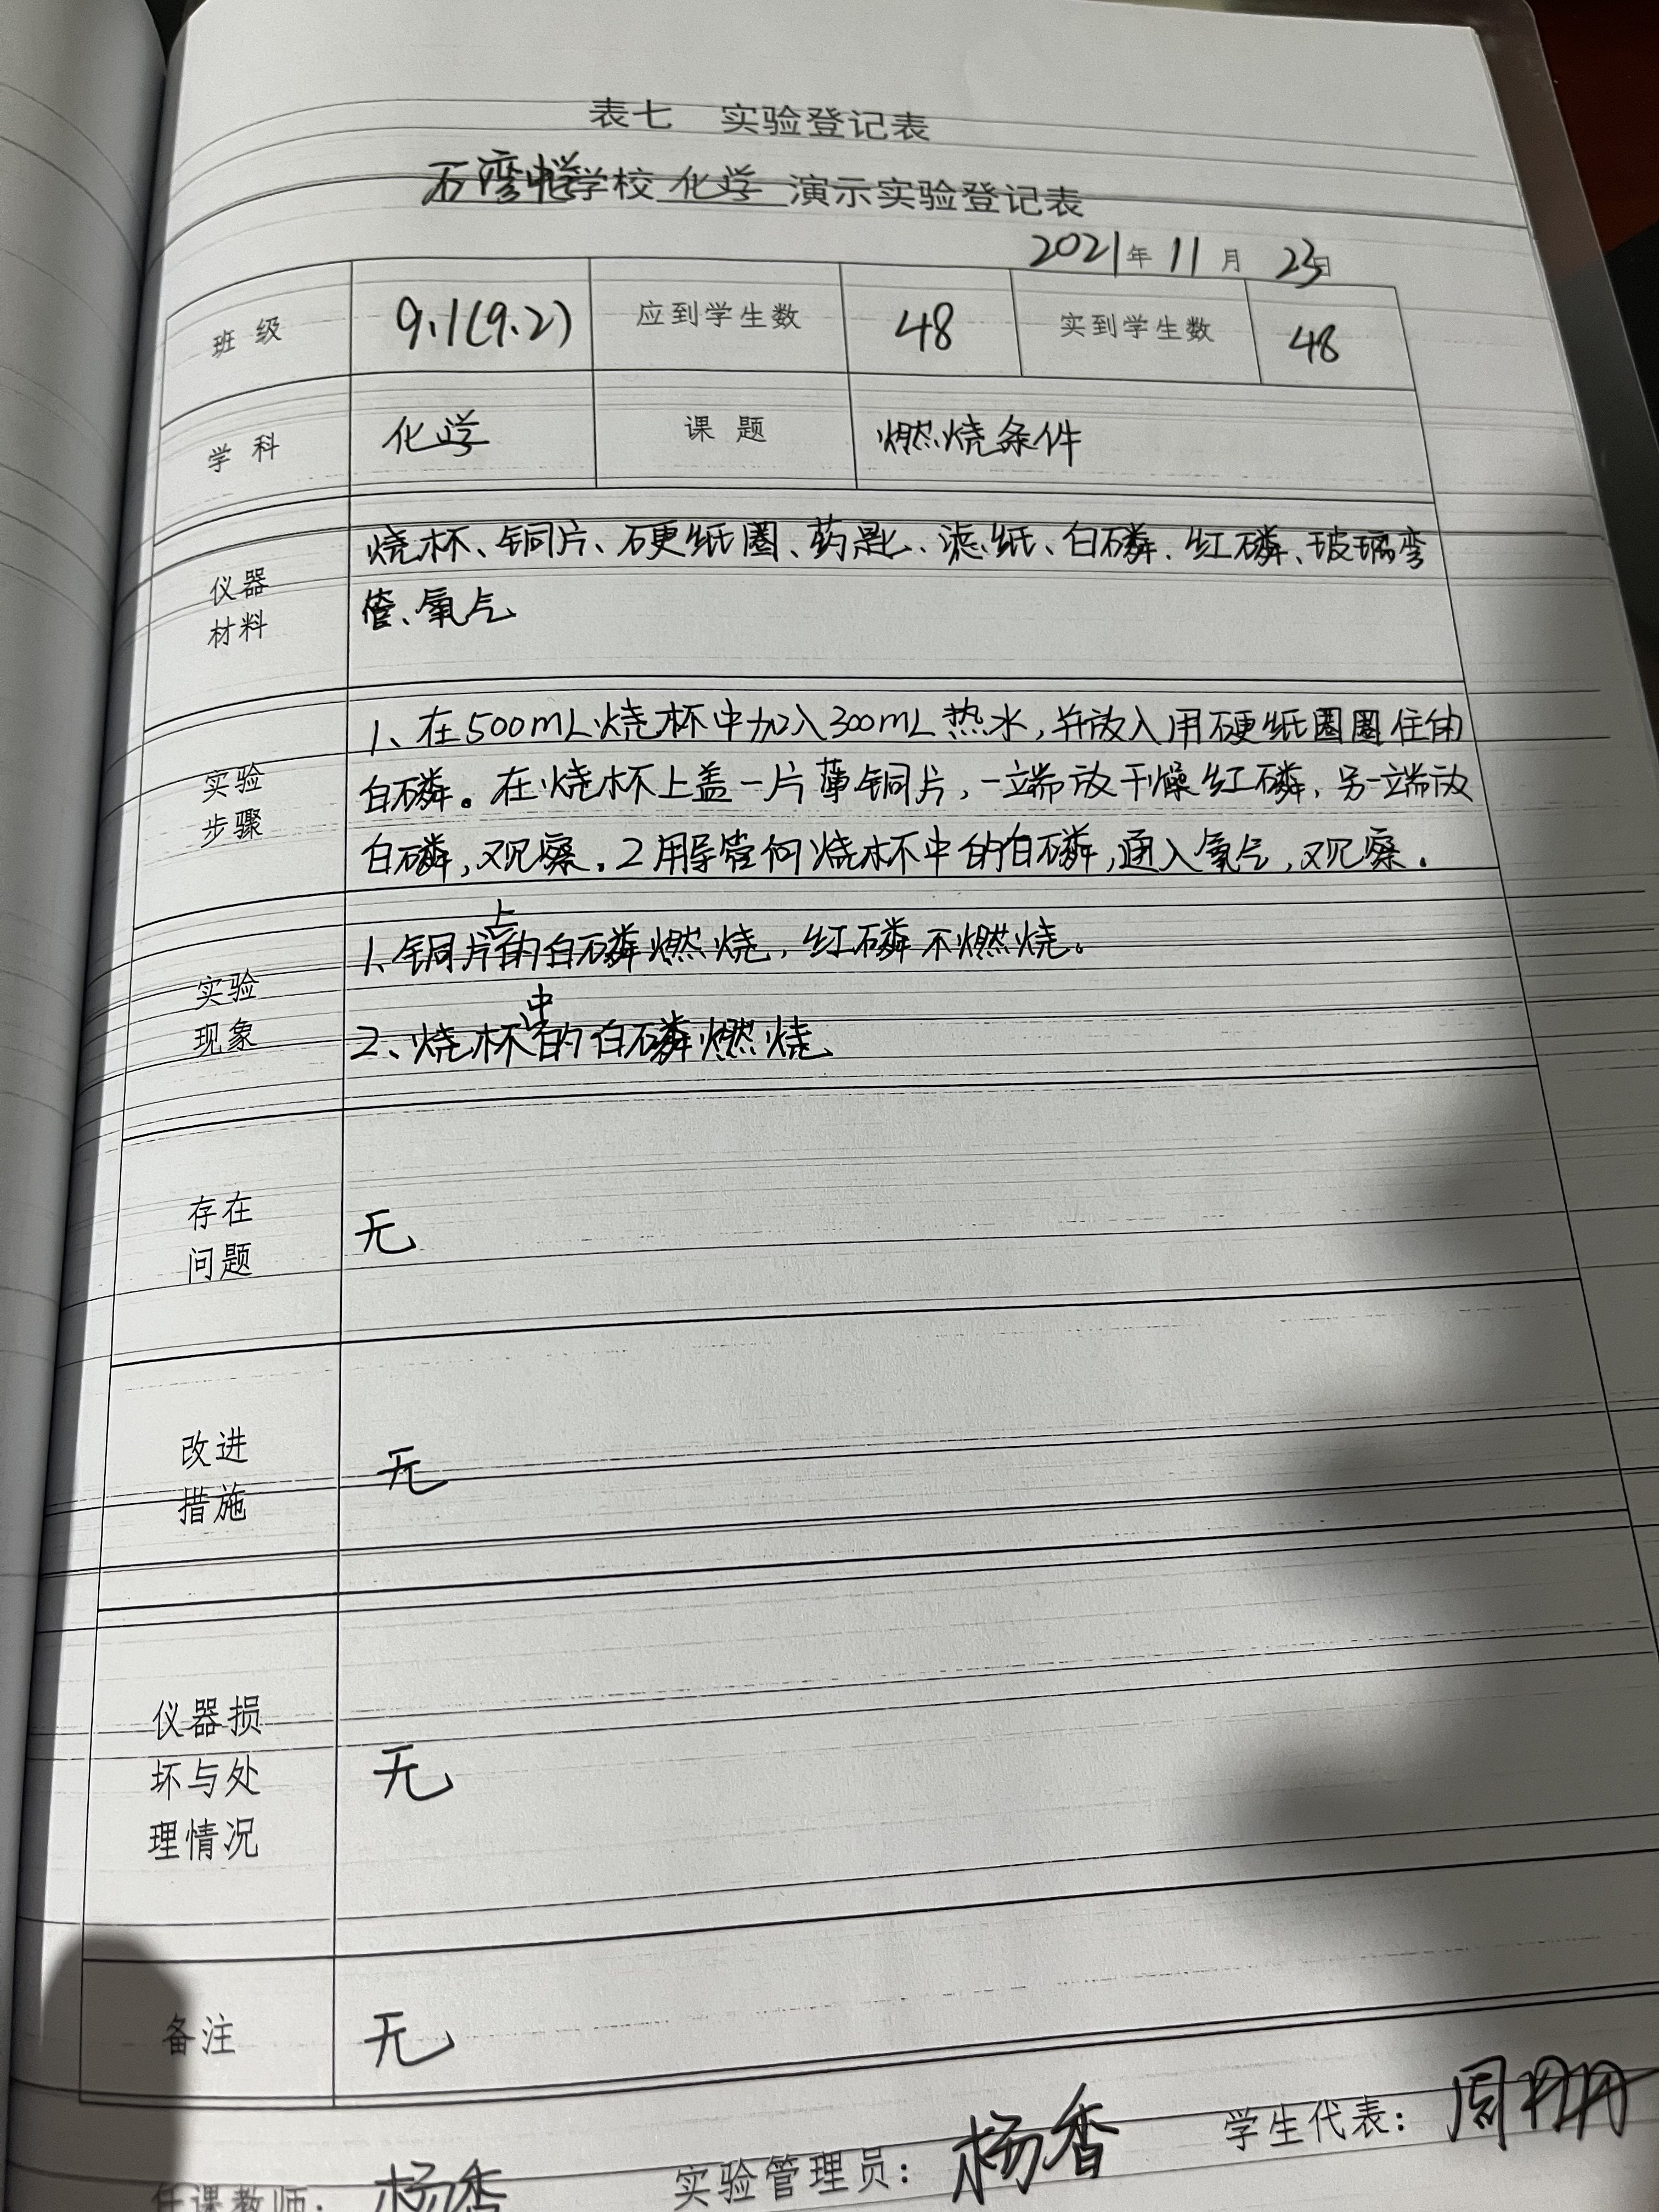 表七 实验登记表
石湾中学学校 化学 演示实验登记表
2021年 11 月 23日
班 级 9.1(9.2) 应到学生数 48 实到学生数 48
学 科 化学 课 题 燃烧条件
仪器
材料
烧杯、铜片、硬纸圈、药匙、滤纸、白磷、红磷、玻璃弯
管、氧气
实验
步骤
1、在500mL烧杯中加入300mL热水,并放入用硬纸圈圈住的
白磷。在烧杯上盖一片薄铜片,一端放干燥红磷,另一端放
白磷,观察。2用导管向烧杯中的白磷,通入氧气,观察。
实验
现象
1、铜片上的白磷燃烧,红磷不燃烧。
2、烧杯中的白磷燃烧
存在
问题
无
改进
措施
无
仪器损
坏与处
理情况
无
备注
无
任课教师: 杨香 实验管理员: 杨香 学生代表: 周